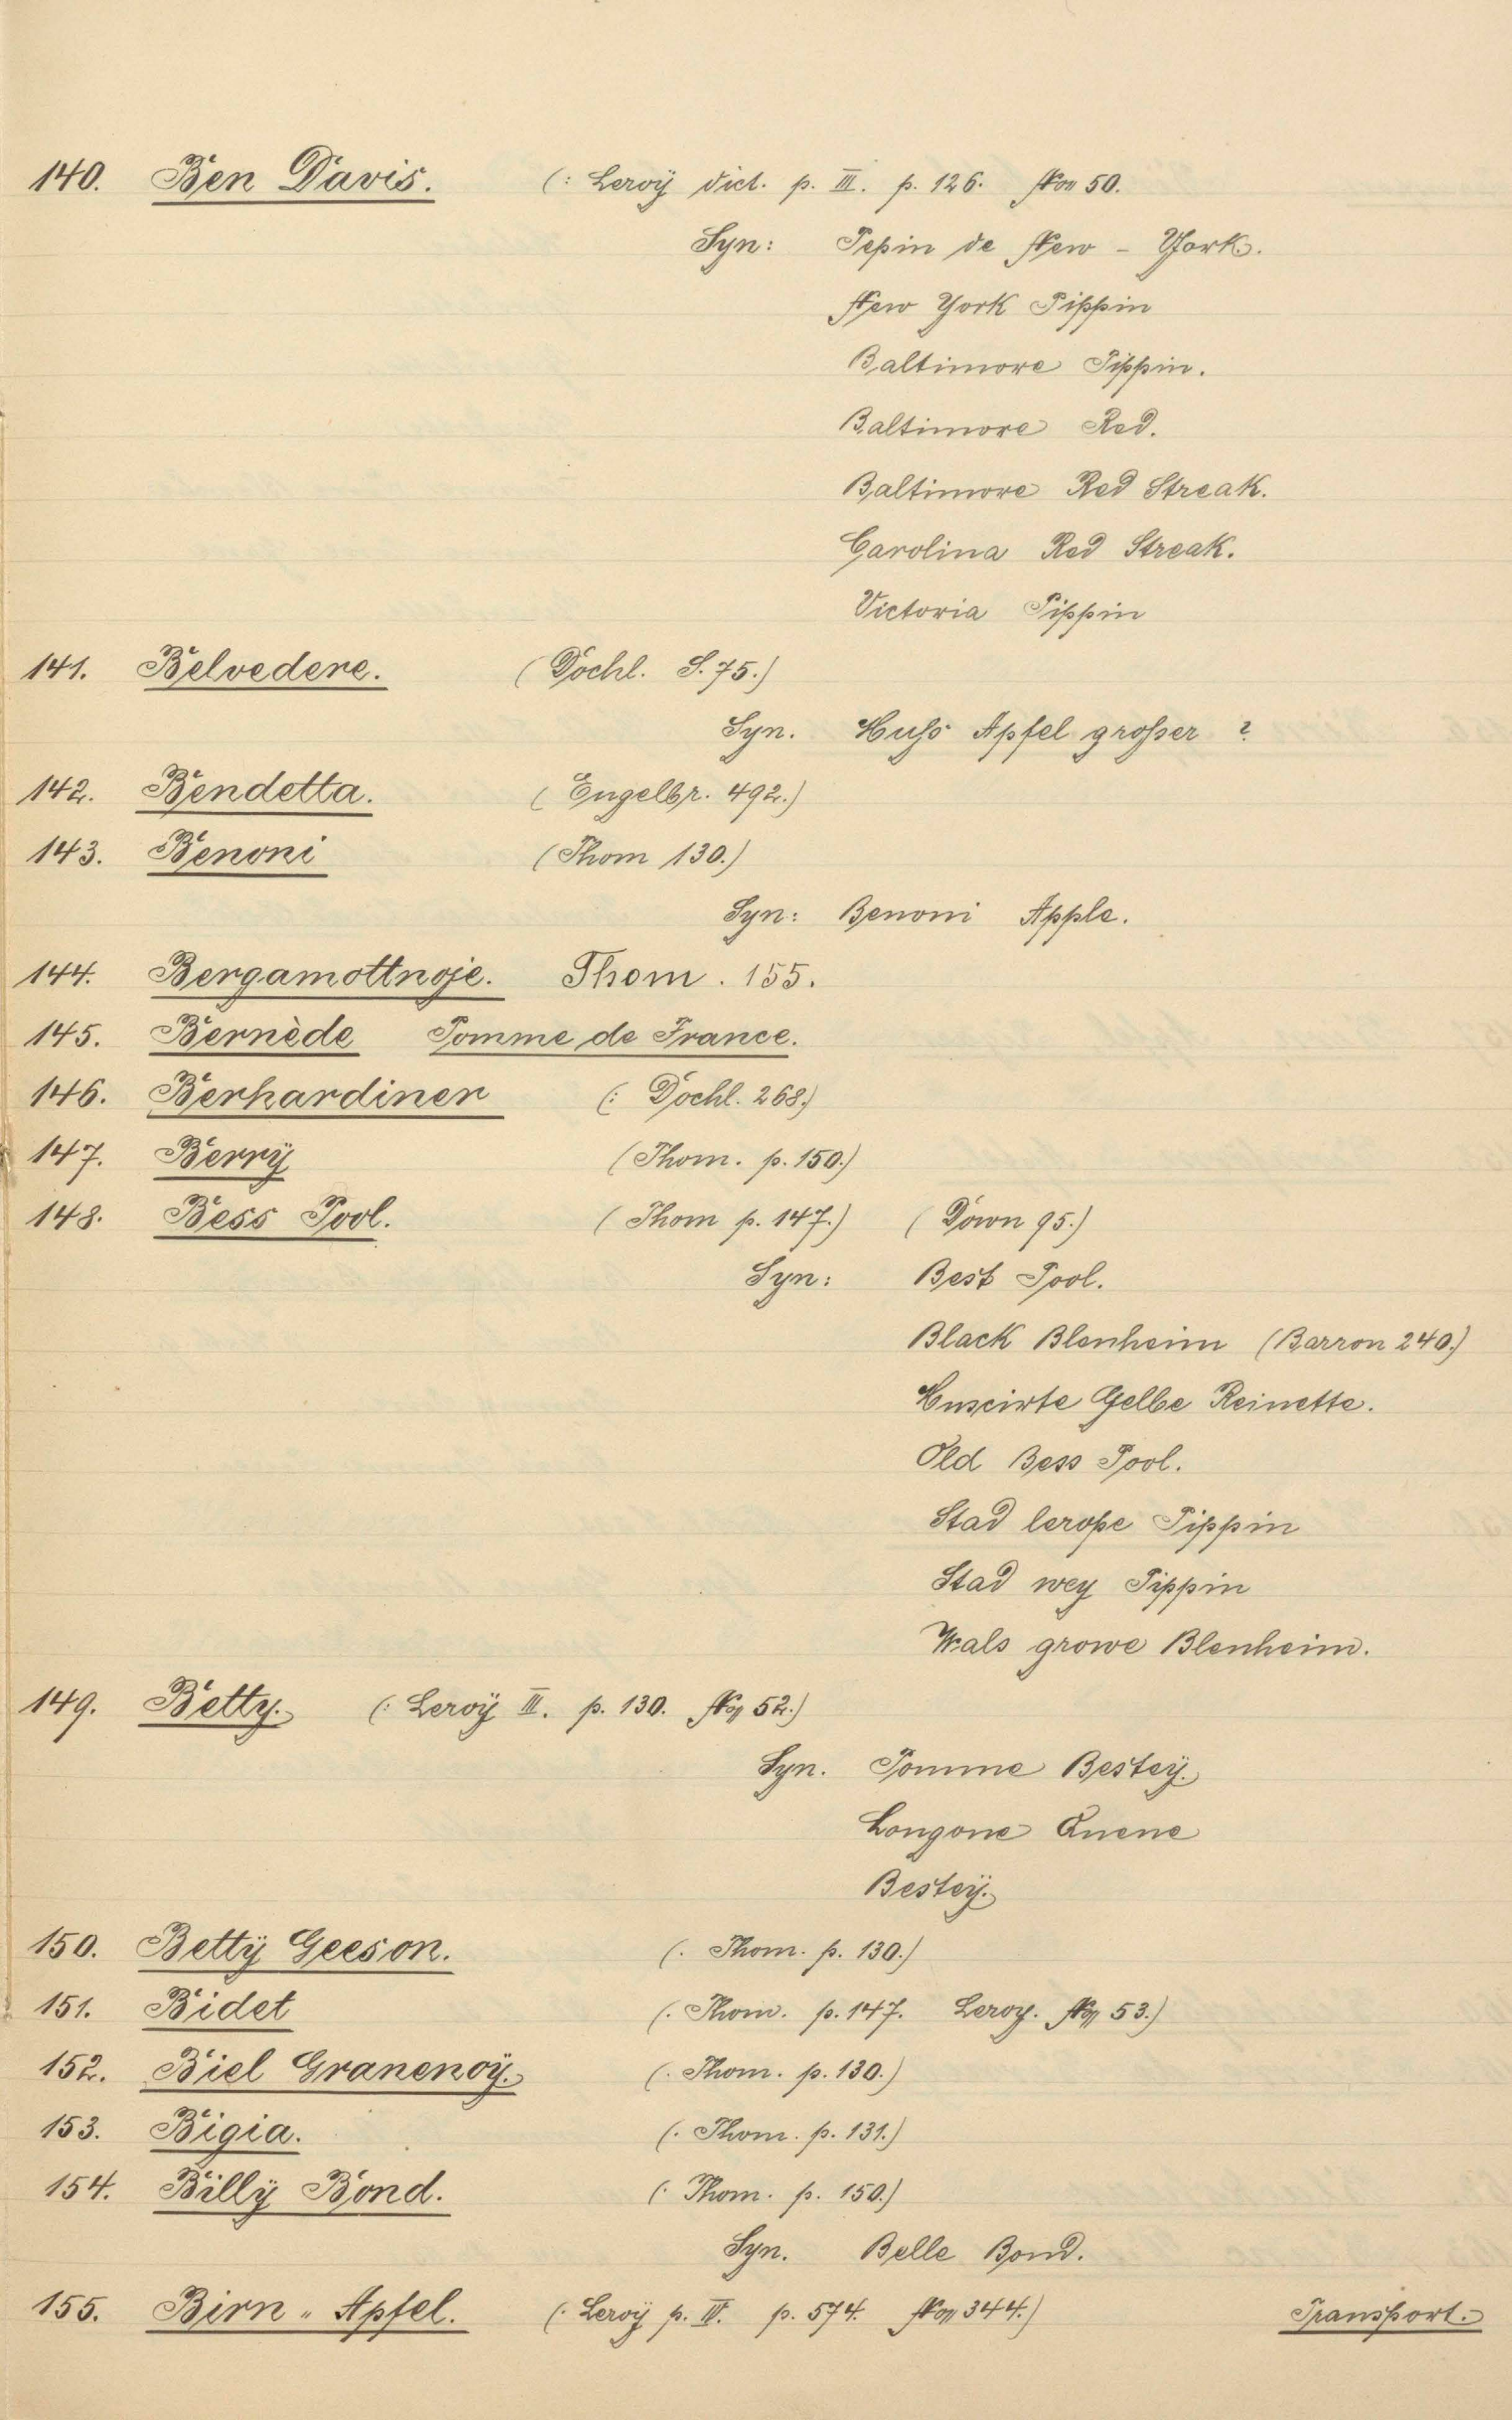 140. Ben Davis. (: Leroÿ dict. p. III. p. 126. No 50.
Syn: Pepin de New - York.
New York Pippin
Baltimore Pippin.
Baltimore Red.
Baltimore Red Streak.
Carolina Red Streak.
Victoria Pippin
141. Belvedere. (Dochl. S. 75.)
Syn. Huſs Apfel groſser ?
142. Bendetta. (Engelbr. 492.)
143. Benoni (Thom 130.)
Syn: Benoni Apple.
144. Bergamottnoje. Thom. 155.
145. Bernède Pomme de France.
146. Berhardiner (: Dochl. 268.)
147. Berrÿ (Thom. p. 150.)
148. Bess Pool. (Thom p. 147.) (Down 95.)
Syn: Best Pool.
Black Blenheim (Barron 240.)
Gelbe Reinette.
Old Bess Pool.
Stad Pippin
Stad wey Pippin
Wals growe Blenheim.
149. Betty. (: Leroÿ III. p. 130. No 52.)
Syn. Pomme Besteÿ.
Longone Quene
Besteÿ.
150. Bettÿ Geeson. (. Thom. p. 130.)
151. Bidet (. Thom. p. 147. Leroy. No 53.)
152. Biel Granenoÿ. (. Thom. p. 130.)
153. Bigia. (. Thom. p. 131.)
154. Billÿ Bond. (: Thom. p. 150.)
Syn. Belle Bond.
155. Birn " Apfel. (: Leroÿ p. IV. p. 574. No 344.) Transport.